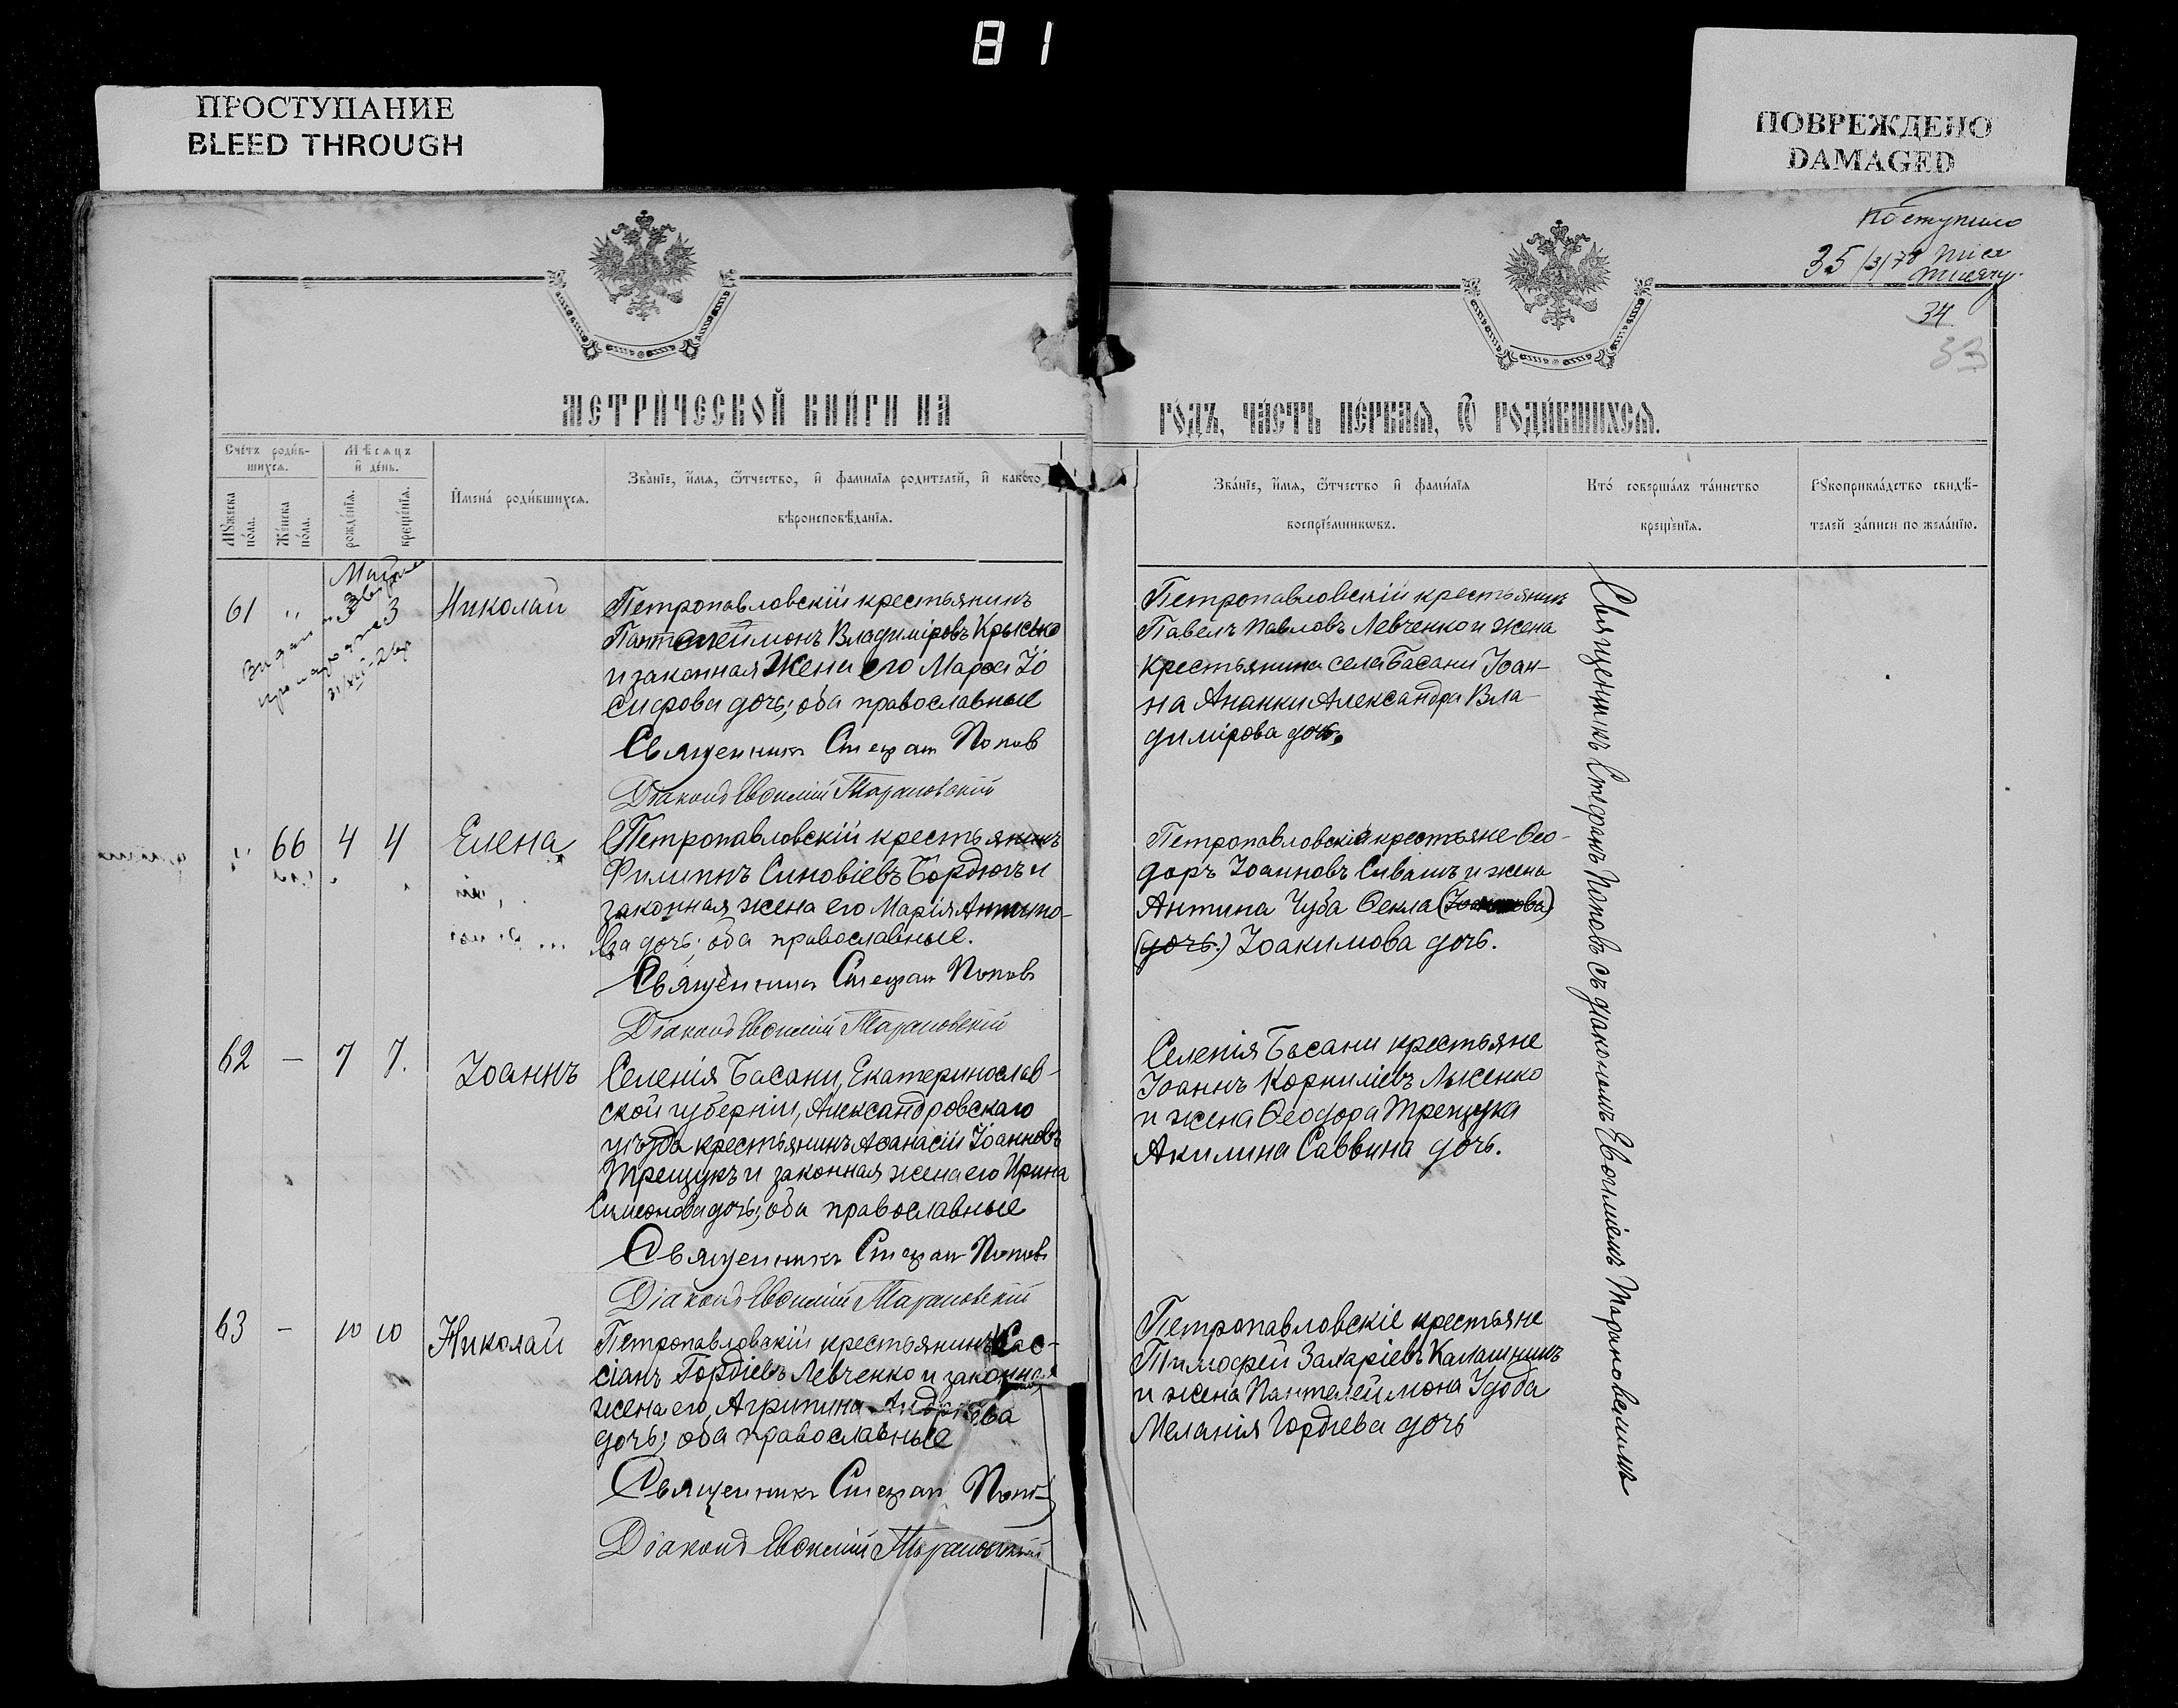 81
ПРОСТУПАНИЕ
BLEED THROUGH
ПОВРЕЖДЕНО
DAMAGED
Поступило
35
34
33
МЕТРИЧЕСКОЙ КНИГИ НА
Счетъ родив-
шихся.
Мѣсяцъ
и день.
Мужеска
пола.
Женска
пола.
рожденія.
крещенія.
Имена родившихся.
Званіе, имя, отчество, и фамилія родителей, и какого
вѣроисповѣданія.
61 " 3 3 Николай
Петропавловскій крестьянинъ
Пантелеймонъ Владиміровъ Крысько
и законная жена его Марѳа Іо
сифова дочь; оба православные
Священникъ Стефан Попов
Діаконъ Евѳимій Тарановскій
" 66 4 4 Елена
Петропавловскій крестьянинъ
Филиппъ Симовіевъ Бордюгъ и
законная жена его Марія Антипо-
ва дочь; оба православные.
Священникъ Стефан Поповъ
Діаконъ Евѳимій Тарановскій
62 — 7 7. Іоаннъ
Селенія Басани, Екатеринослав-
ской губерніи, Александровскаго
уѣзда крестьянинъ Аѳанасій Іоанновъ
Трещукъ и законная жена его Ирина
Симеонова дочь; оба православные
Священникъ Стефан Поповъ
Діаконъ Евѳимій Тарановскій
63 — 10 10 Николай
Петропавловскій крестьянинъ Кас-
сіанъ Гордіевъ Левченко и законная
жена его, Агрипина Андреева
дочь; оба православные
Священникъ Стефан Попов
Діаконъ Евѳимій Тарановскій
ГОДЪ, ЧАСТЬ ПЕРВАЯ, Ѡ РОДИВШИХСЯ.
Званіе, имя, отчество и фамилія
воспріемниковъ.
Кто совершалъ таинство
крещенія.
Рукоприкладство свидѣ-
телей записи по желанію.
Петропавловскій крестьянинъ
Павелъ Павловъ Левченко и жена
крестьянина села Басани Іоан-
на Ананки Александра Вла-
димірова дочь.
Петропавловскіе крестьяне Ѳео-
доръ Іоанновъ Сивашъ и жена
Антипа Чуба Ѳекла
(дочь.) Іоакимова дочь.
Селенія Басани крестьяне
Іоаннъ Корниліевъ Лысенко
и жена Ѳеодора Трещука
Акилина Саввина дочь.
Петропавловскіе крестьяне
Тимофей Захаріевъ Калашникъ
и жена Пантелеймона Удода
Меланія Гордіева дочь
Священникъ Стефанъ Поповъ съ діакономъ Евѳиміемъ Тарановскимъ